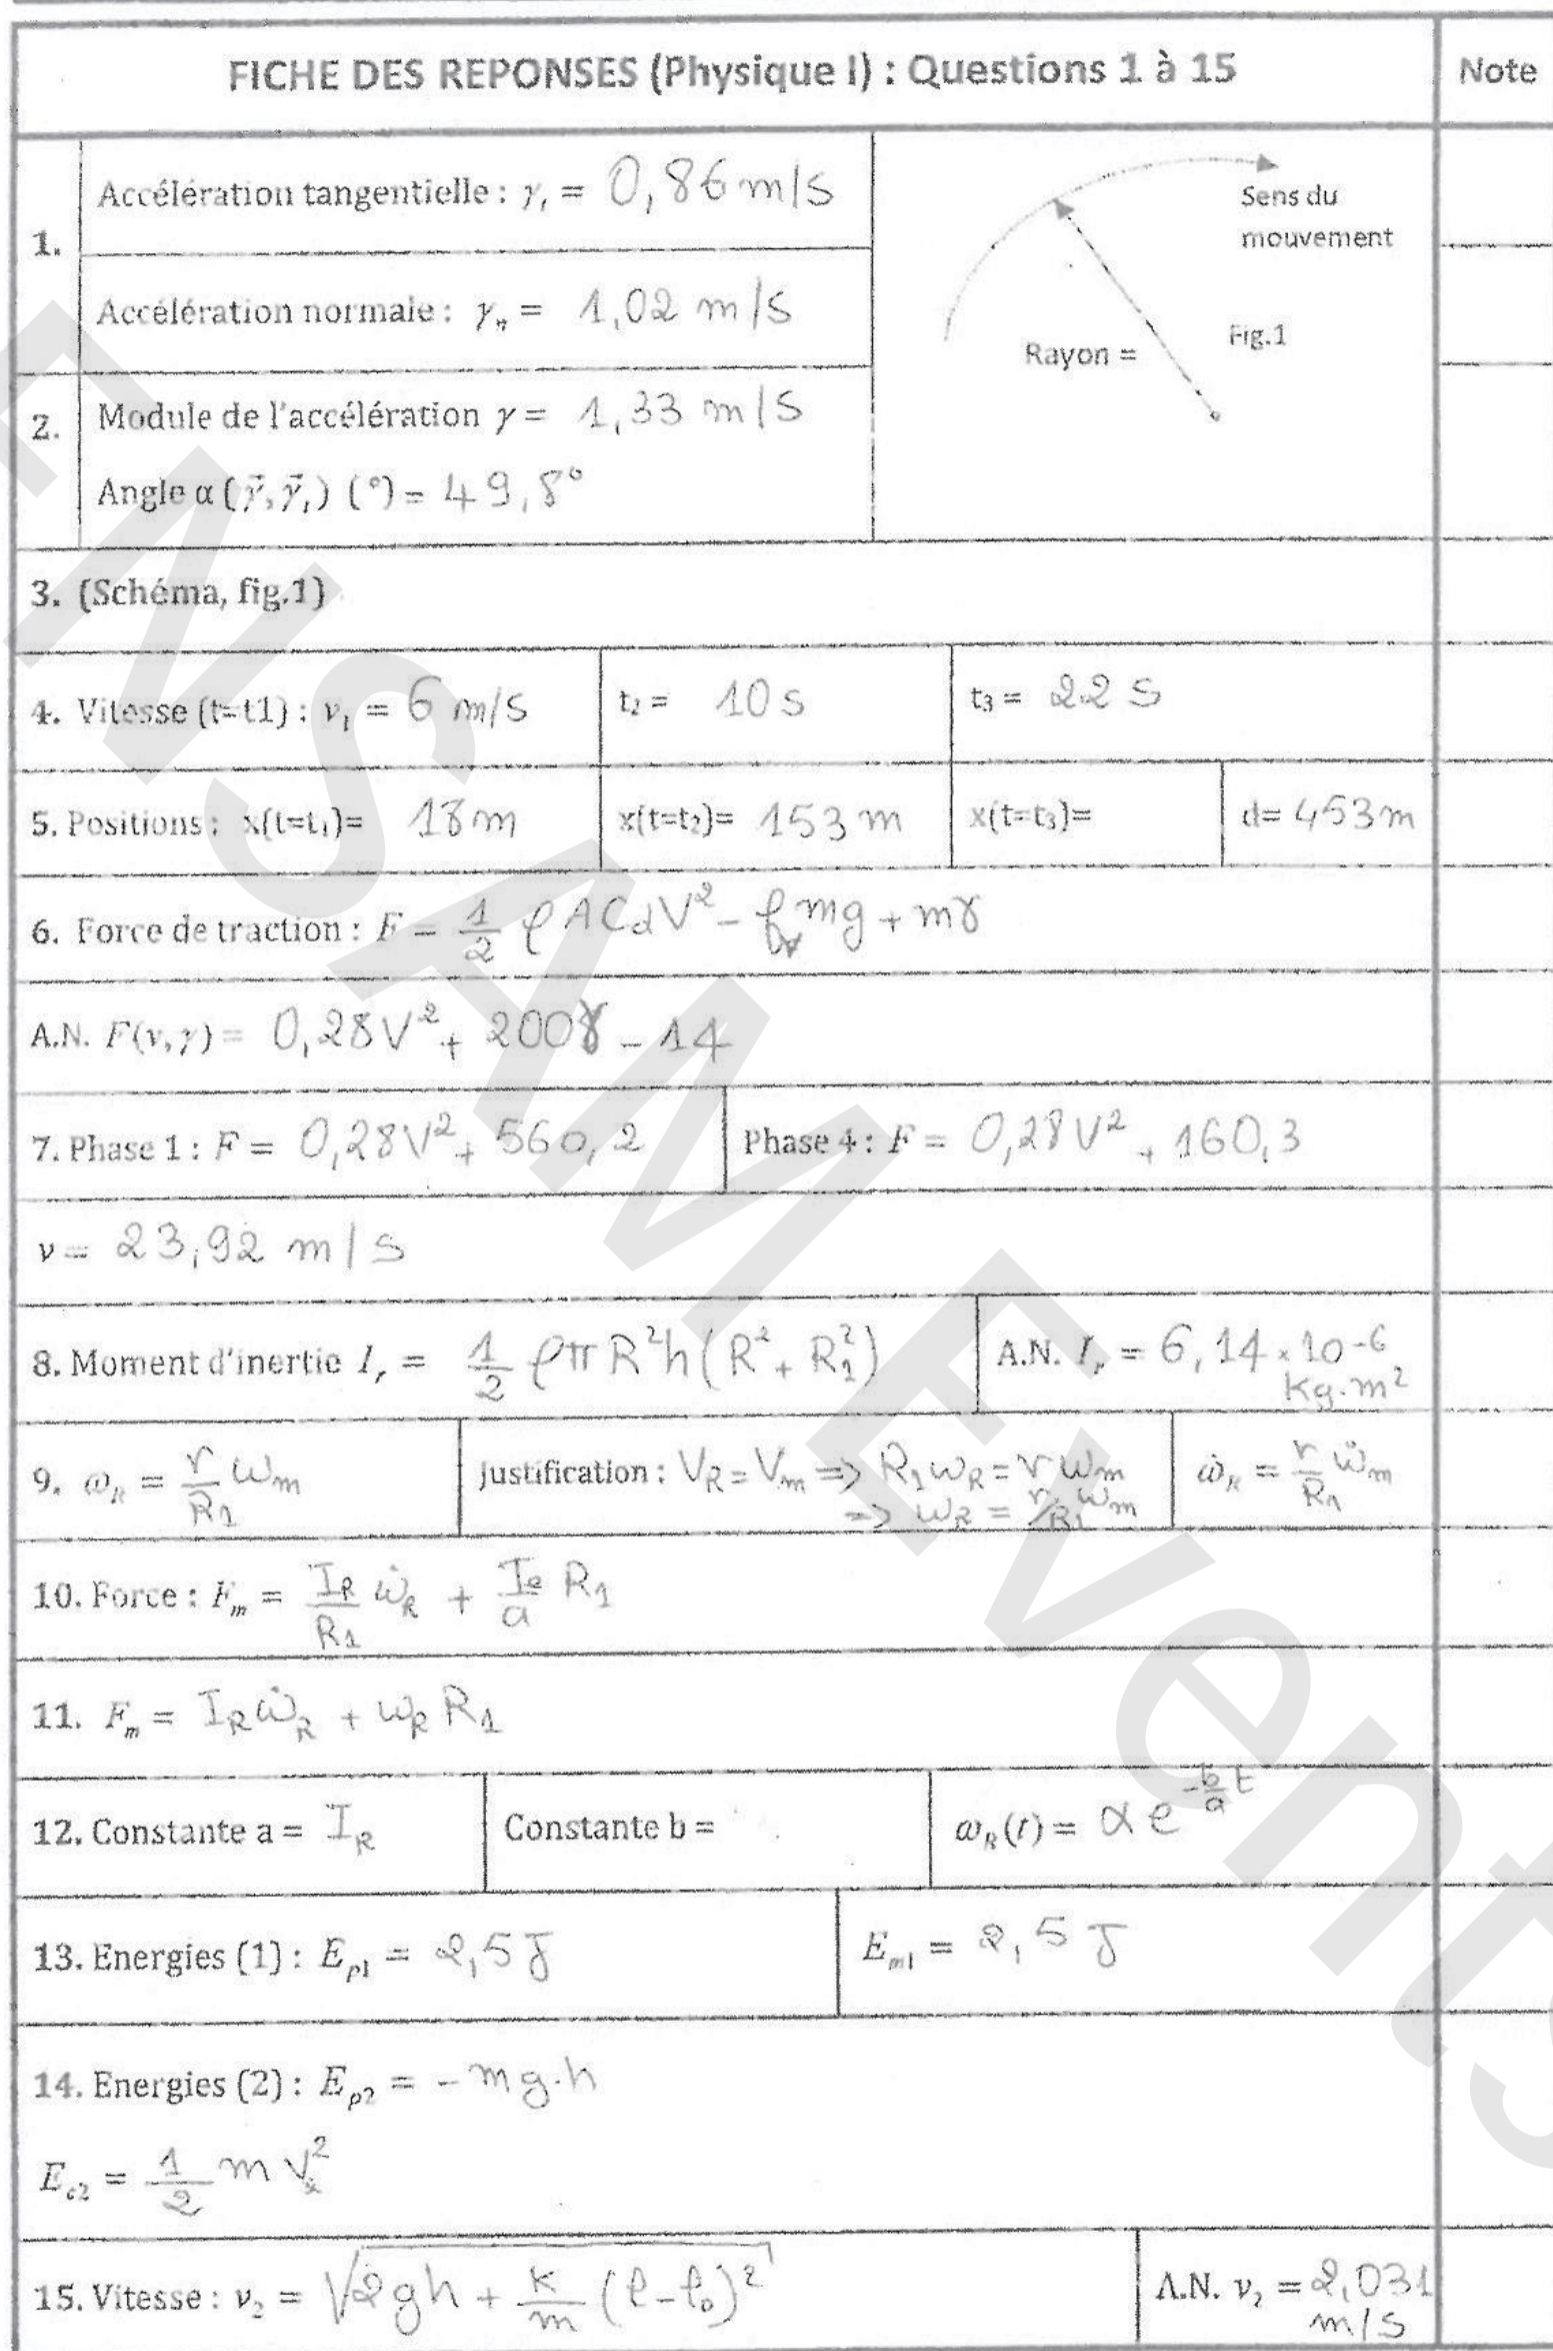 FICHE DES REPONSES (Physique I) : Questions 1 à 15
Note
1.
Accélération tangentielle : γₜ = 0,86 m/s
Accélération normale : γₙ = 1,02 m/s
Sens du
mouvement
Rayon =
Fig.1
2.
Module de l'accélération γ = 1,33 m/s
Angle α (γ⃗, γ⃗ₜ) (°) = 49,8°
3. (Schéma, fig.1)
4. Vitesse (t=t1) : v₁ = 6 m/s
t₂ = 10 s
t₃ = 22 s
5. Positions : x(t=t₁)= 18 m
x(t=t₂)= 153 m
x(t=t₃)=
d= 453 m
6. Force de traction : F = 1/2 ρ A Cd V² - fᵥ mg + mγ
A.N. F(v,γ) = 0,28V² + 200γ - 14
7. Phase 1 : F = 0,28V² + 560,2
Phase 4 : F = 0,28V² + 160,3
v = 23,92 m/s
8. Moment d'inertie Iᵣ = 1/2 ρπR²h(R² + R₁²)
A.N. Iᵣ = 6,14 × 10⁻⁶
kg.m²
9. ω_R = r/R₁ ωm
Justification : V_R = Vm => R₁ω_R = r ωm
=> ω_R = r/R₁ ωm
ω̇_R = r/R₁ ω̇m
10. Force : Fm = I_R/R₁ ω̇_R + Ie/a R₁
11. Fm = I_R ω̇_R + ω_R R₁
12. Constante a = I_R
Constante b =
ω_R(t) = α e^(-b/a t)
13. Energies (1) : E_p1 = 2,5 J
E_m1 = 2,5 J
14. Energies (2) : E_p2 = - mg.h
E_c2 = 1/2 m V₂²
15. Vitesse : v₂ = √(2gh + k/m (l - l₀)²)
A.N. v₂ = 2,031
m/s
ENSAM Events